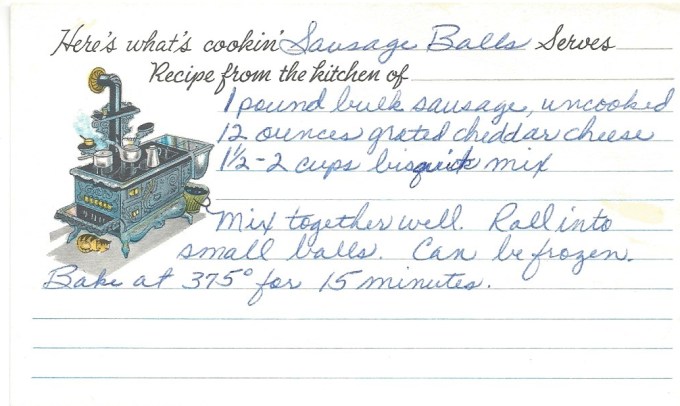 Here's what's cookin' Sausage Balls Serves
Recipe from the kitchen of
1 pound bulk sausage, uncooked
12 ounces grated cheddar cheese
1½-2 cups bisquick mix
Mix together well. Roll into
small balls. Can be frozen.
Bake at 375° for 15 minutes.